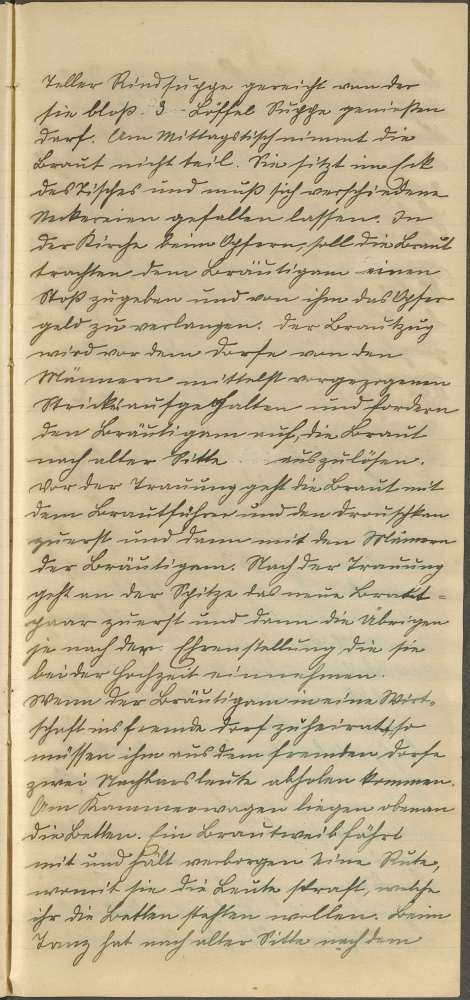 Teller Rindsuppe gereicht von der
sie bloß 3 Löffel Suppe genießen
darf. Am Mittagstisch nimmt die
Braut nicht teil. Sie sitzt im Eck
des Tisches und muß sich verschiedene
Neckereien gefallen lassen. In
der Kirche beim Opfern, soll die Braut
trachten dem Bräutigam einen
Stoß zugeben und von ihm das Opfer
geld zu verlangen. Der Brautzug
wird vor dem Dorfe von den
Männern mittelst vorgezogenen
Stricke aufgehalten und fordern
den Bräutigam auf, die Braut
nach alter Sitte auszulösen.
Vor der Trauung geht die Braut mit
dem Brautführer und den Druschken
zuerst und dann mit den Männern
der Bräutigam. Nach der Trauung
geht an der Spitze das neue Braut=
paar zuerst und dann die Übrigen
je nach der Ehrenstellung die sie
bei der Hochzeit einnehmen.
Wenn der Bräutigam in eine Wirt-
schaft ins fremde Dorf zuheiratet, so
müssen ihm aus dem fremden Dorfe
zwei Nachbarsleute abholen kommen.
Am Kammerwagen liegen obenan
die Betten. Ein Brautweib fährt
mit und hält verborgen eine Rute,
womit sie die Leute straft, welche
ihr die Betten stehlen wollen. Beim
Tanz hat nach alter Sitte nach dem